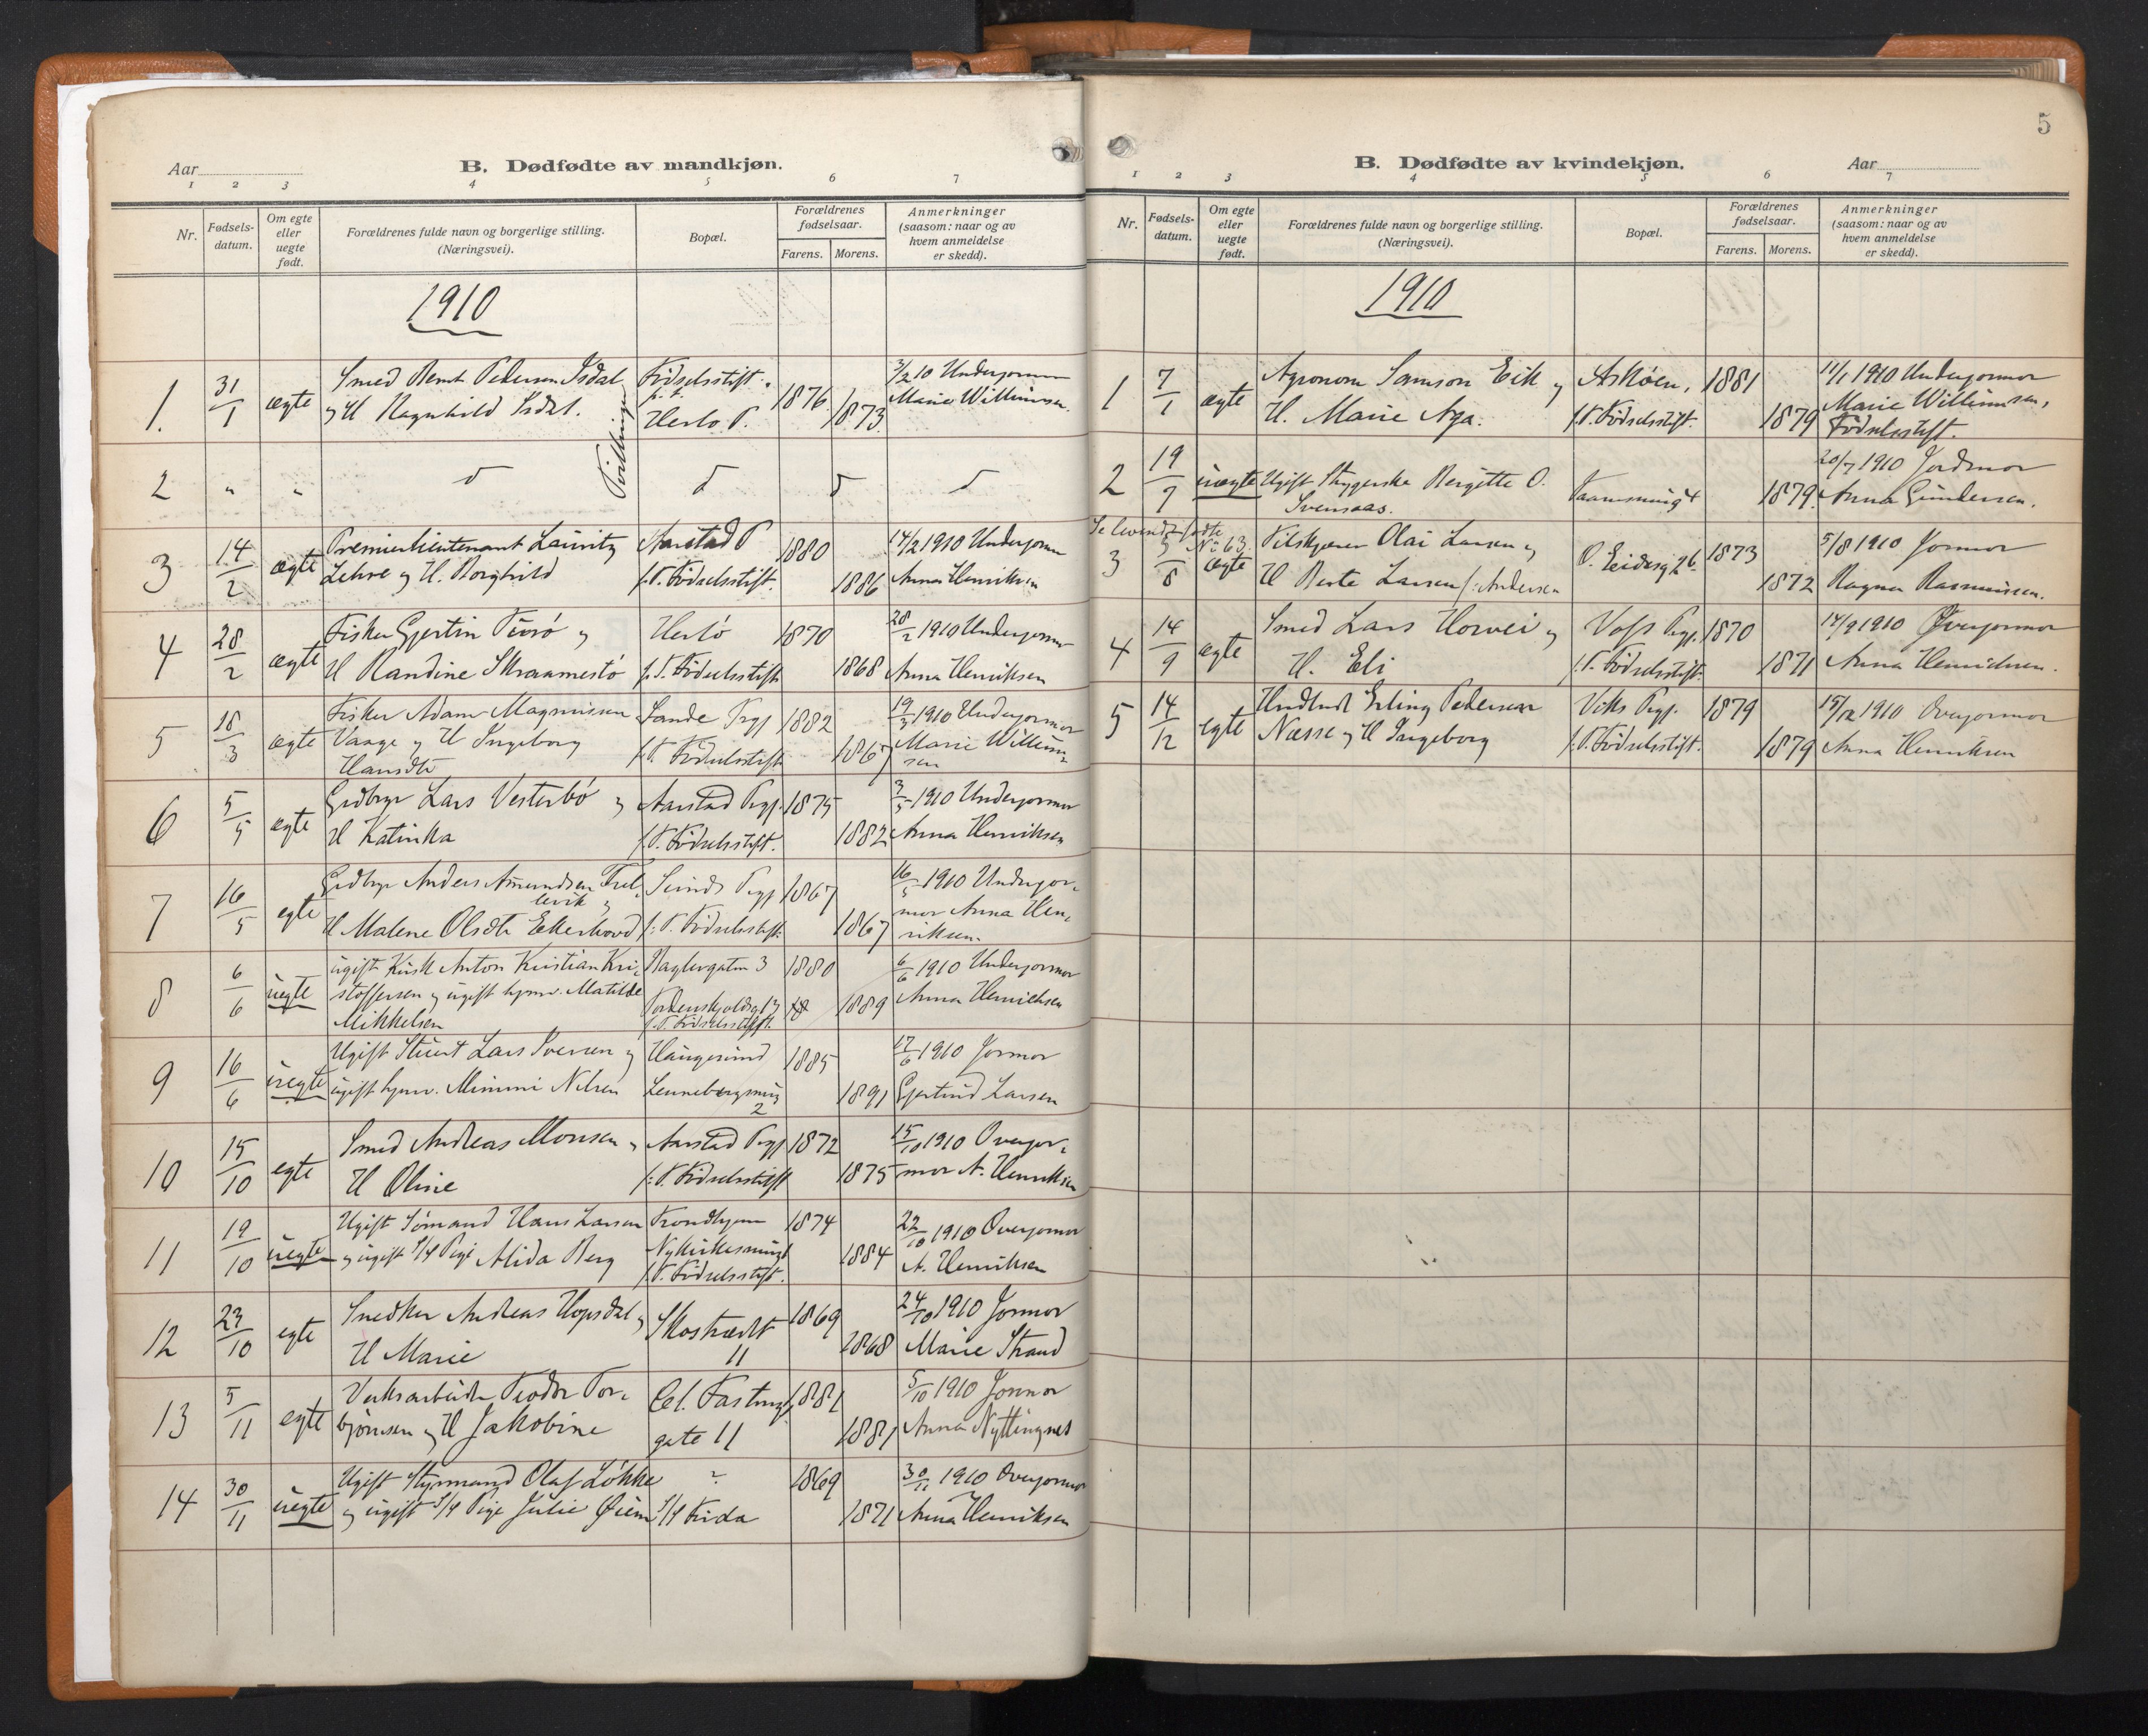 Aar
B. Dødfødte av mandkjøn.
1 2 3 4 5 6 7
Nr.
Fødsels-
datum.
Om egte
eller
uegte
født.
Forældrenes fulde navn og borgerlige stilling.
(Næringsvei).
Bopæl.
Forældrenes
fødselsaar.
Farens. Morens.
Anmerkninger
(saasom: naar og av
hvem anmeldelse
er skedd).
1910
1. 31/1 ægte
Smed Bernt Pedersen Isdal
og H Ragnhild Isdal.
Tvillinger
Fødselsstift.
Herlø P.
1876
1873.
3/2 10 Underjormor
Marie Willumsen.
2 " "
3 14/2 ægte
Premierlieutenant Lauritz
Lehre og H. Borghild
Aarstad P
f.T. Fødselsstift.
1880
1886
14/2 1910 Underjormor
Anna Henriksen
4 28/2 ægte
Fisker Gjertin Turø og
H Randine Skraamestø
Herlø
f.T. Fødselsstift
1870
1868
28/2 1910 Underjormor
Anna Henriksen
5 18/3 ægte
Fisker Adam Magnussen
Vaage og H Ingeborg
Hansdtr
Sande Prgj
f.T. Fødselsstift
1882
1867
19/3 1910 Underjormor
Marie Willum-
sen
6 5/5 ægte
Grdbgr Lars Vesterbø og
H Katinka
Aarstad Prgj.
f.T. Fødselsstift.
1875
1882
1910 Underjormor
Anna Henriksen
7 16/5 egte
Grdbgr Anders Amundsen
H Malene Olsdtr Ekerhovd
Sunds Prgj
f.T. Fødselsstift.
1867
1867
16/5 1910 Underjor-
mor Anna Hen-
riksen.
8 6/6 uegte
ugift Kusk Anton Kristian Kri-
stoffersen og ugift hjmv. Matilde
Mikkelsen
Baglergaten 3
Tordenskjoldsg 17
f.T. Fødselsstift.
1880
1889
6/6 1910 Underjormor
Anna Henriksen
9 16/6 uegte
Ugift Stuert Lars Iversen og
ugift hjmv. Mimmi Nilsen
Haugesund
Lennebergsmug
2
1885
1891
17/6 1910 Jormor
Gjertrud Larsen
10 15/10 egte
Smed Andreas Monsen og
H Oline
Aarstad Prgj
f.T. Fødselsstift
1872
1875
15/10 1910 Overjor-
mor A. Henriksen
11 19/10 uegte
Ugift Sømand Hans Larsen
og ugift Pige Alida Berg
Trondhjem
Nykirkesmug
f.T. Fødselsstift.
1874
1884
22/10 1910 Overjormor
A. Henriksen
12 23/10 egte
Snedker Andreas Hopsdal og
H Marie
Skostrædet
11
1869
1868
24/10 1910 Jormor
Marie Strand
13 5/11 egte
Verksarbeider Teodor Tor-
bjørnsen og H Jakobine
Cel. Fastings
gate 11
1881
1881
5/10 1910 Jormor
Anna Nyttingnes
14 30/11 uegte
Ugift Styrmand Olaf Løkke
og ugift Pige Julie Øien
?
Frida
1869
1871
30/11 1910 Overjormor
Anna Henriksen
5
B. Dødfødte av kvindekjøn.
Aar
1 2 3 4 5 6 7
Nr.
Fødsels-
datum.
Om egte
eller
uegte
født.
Forældrenes fulde navn og borgerlige stilling.
(Næringsvei).
Bopæl.
Forældrenes
fødselsaar.
Farens. Morens.
Anmerkninger
(saasom: naar og av
hvem anmeldelse
er skedd).
1910
1 7/1 ægte
Agronom Samson Eik og
H. Marie Aga.
Askøen,
f.T. Fødselsstift.
1881
1879
11/1 1910 Underjormor
Marie Willumsen,
Fødselsstift.
2 19/7 uægte
Ugift Strygerske Bergitte O.
Svensaas.
1879.
20/7 1910 Jordmor
Anna Gundersen.
Se levende fødte
No 63.
3 5/8 ægte
Olai Larsen og
H Berte Larsen f. Andersen
1873
1872
5/8 1910 Jormor
Ragna Rasmussen.
4 14/9 ægte
Smed Lars Horvei og
H. Eli
Voss Prgj.
f.T. Fødselsstift.
1870
1871
14/9 1910 Overjormor
Anna Henriksen.
5 14/12 egte
Erling Pedersen
Næsse og H Ingeborg
Viks Prgj.
f.T. Fødselsstift.
1879
1879
15/12 1910 Overjormor
Anna Henriksen